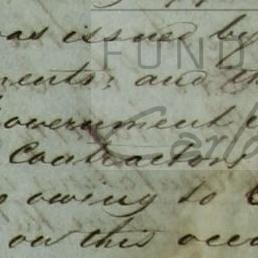 was issued by
ments; and th
Government
Contractor
owing to
on this occa
FUND